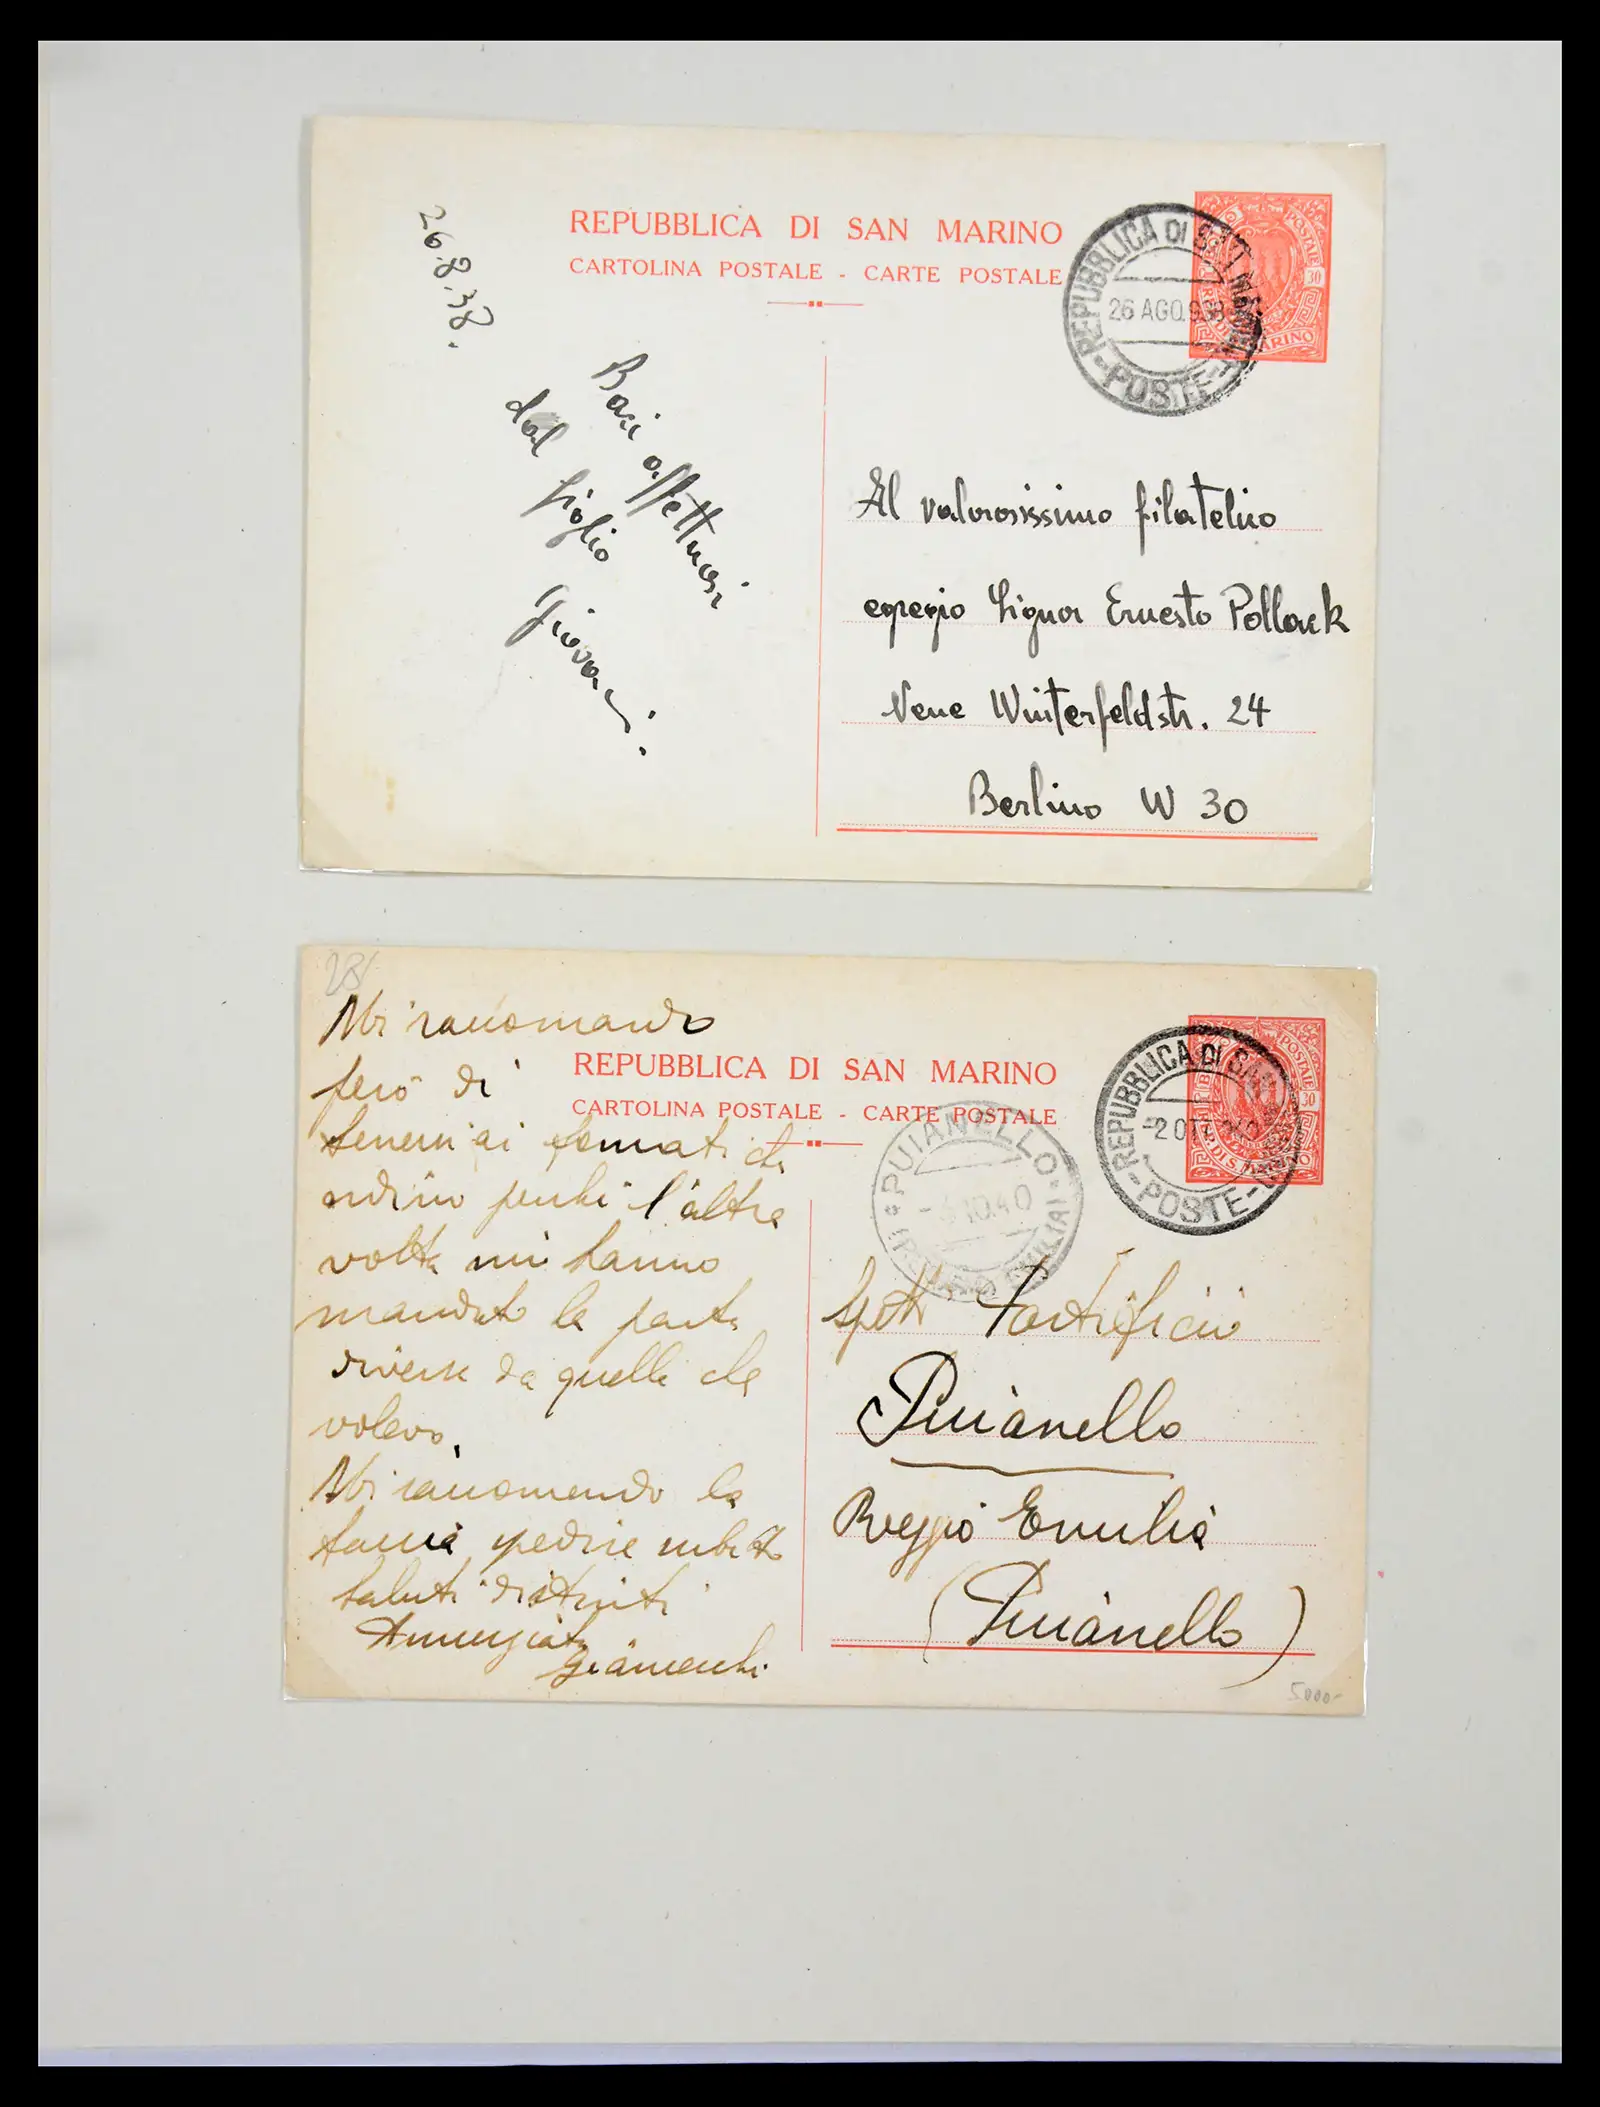 26.8.38.
REPUBBLICA DI SAN MARINO
CARTOLINA POSTALE - CARTE POSTALE
REPUBBLICA DI SAN MARINO
26 AGO.938
-POSTE-
POSTALE
30
MARINO
Baci affettuosi
dal figlio
Giovanni.
Al valorosissimo filatelico
egregio Signor Ernesto Pollack
Neue Winterfeldstr. 24
Berlino W 30
Mi raccomando
però di
tenersi ai formati che
ordino perchè l'altra
volta mi hanno
mandato la pasta
diversa da quella che
volevo.
Mi raccomando la
faccia spedire subito
Saluti distinti
REPUBBLICA DI SAN MARINO
CARTOLINA POSTALE - CARTE POSTALE
REPUBBLICA DI SAN
-2 OTT. 940
-POSTE-
POSTALE
30
PUIANELLO
10.40
EMILIA)
Spett Pastificio
Puianello
Reggio Emilia
(Puianello)
5000-